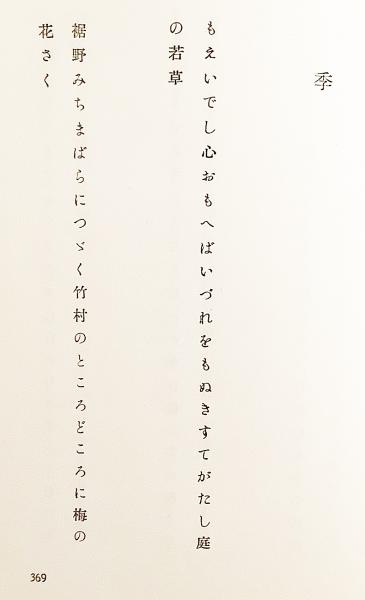 季
もえいでし心おもへばいづれをもぬきすてがたし庭
の若草
裾野みちまばらにつゞく竹村のところどころに梅の
花さく
369